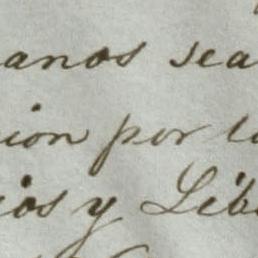 anos sea
ion por lo
ios y Lib